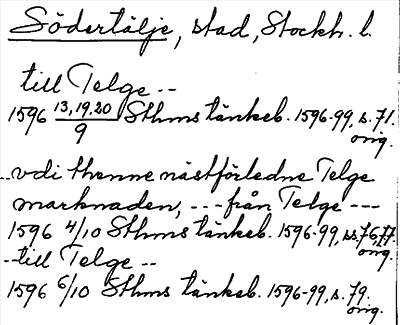 Södertälje, stad, Stockh. l.
till Telge --
1596 13,19.20/9 Sthms tänkeb. 1596-99, s. 71.
orig.
--vdi thenne nästförledne Telge
marknaden, --- från Telge ---
1596 4/10 Sthms tänkeb. 1596-99, ss. 76, 77.
orig.
--till Telge --
1596 6/10 Sthms tänkeb. 1596-99, s. 79.
orig.